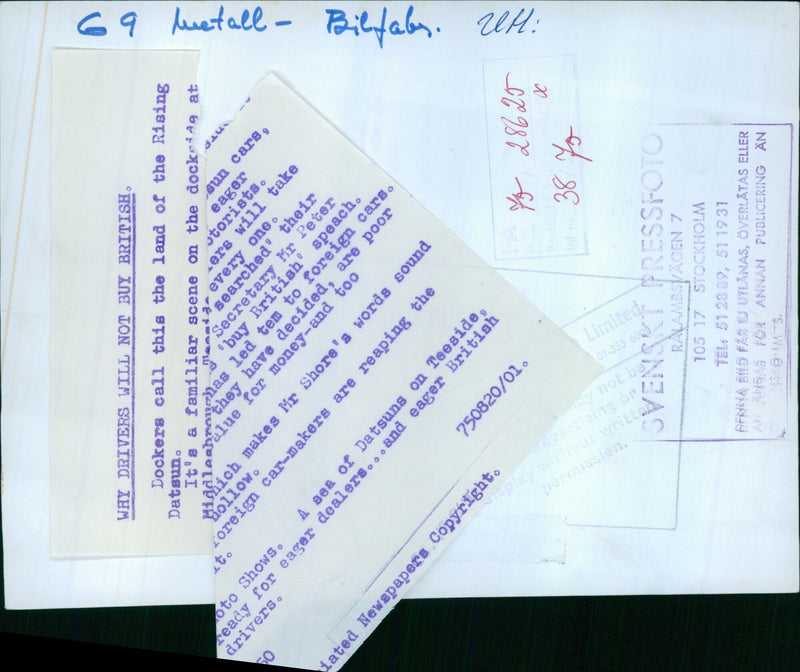 G 9 Metall - Bilfabr. UH:
WHY DRIVERS WILL NOT BUY BRITISH.
Dockers call this the land of the Rising
Datsun.
It's a familiar scene on the dockside at
Middlesbrough Teeside
sun cars,
eager
torists.
ers will take
every one.
searched, their
Secretary Mr Peter
'buy British' speech.
has led tem to foreign cars.
they have decided, are poor
alue for money-and too
hich makes Mr Shore's words sound
hollow.
oreign car-makers are reaping the
it.
oto Shows. A sea of Datsuns on Teeside,
ready for eager dealers...and eager British
drivers.
750820/01.
iated Newspapers Copyright.
75 28625
38 75 x
SVENSKT PRESSFOTO
RÅLAMBSVÄGEN 7
105 17 STOCKHOLM
TEL: 51 28 89, 51 19 31
DENNA BILD FÅR EJ UTLÅNAS, ÖVERLÅTAS ELLER
FÖR ANNAN PUBLICERING ÄN
Limited
may not be
advertising or
display without written
permission.